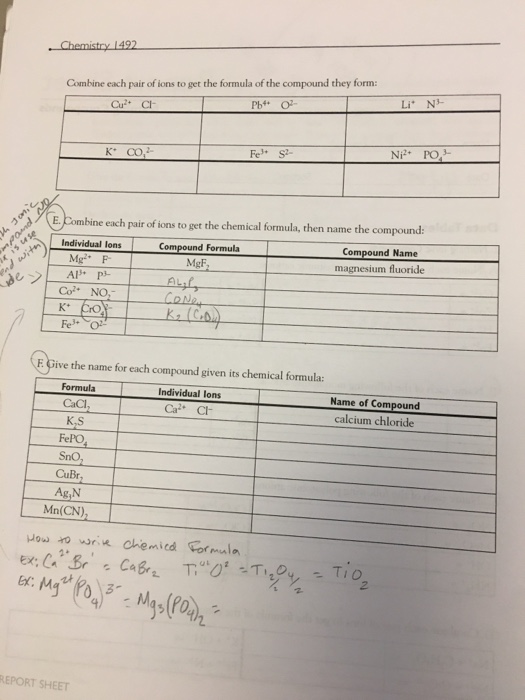 Chemistry 1492
Combine each pair of ions to get the formula of the compound they form:
Cu²⁺ Cl⁻ Pb⁴⁺ O²⁻ Li⁺ N³⁻
K⁺ CO₃²⁻ Fe³⁺ S²⁻ Ni²⁺ PO₄³⁻
E. Combine each pair of ions to get the chemical formula, then name the compound:
Individual Ions Compound Formula Compound Name
Mg²⁺ F⁻ MgF₂ magnesium fluoride
Al³⁺ P³⁻
Co²⁺ NO₃⁻
K⁺ CrO₄²⁻
Fe³⁺ O²⁻
F. Give the name for each compound given its chemical formula:
Formula Individual Ions Name of Compound
CaCl₂ Ca²⁺ Cl⁻ calcium chloride
K₂S
FePO₄
SnO₂
CuBr₂
Ag₃N
Mn(CN)₂
How to write chemical Formula
Ex: Ca²⁺ Br⁻ = CaBr₂ = Ti₂O₄ = TiO₂
Ex: Mg²⁺(PO₄)³⁻ = Mg₃(PO₄)₂ =
REPORT SHEET